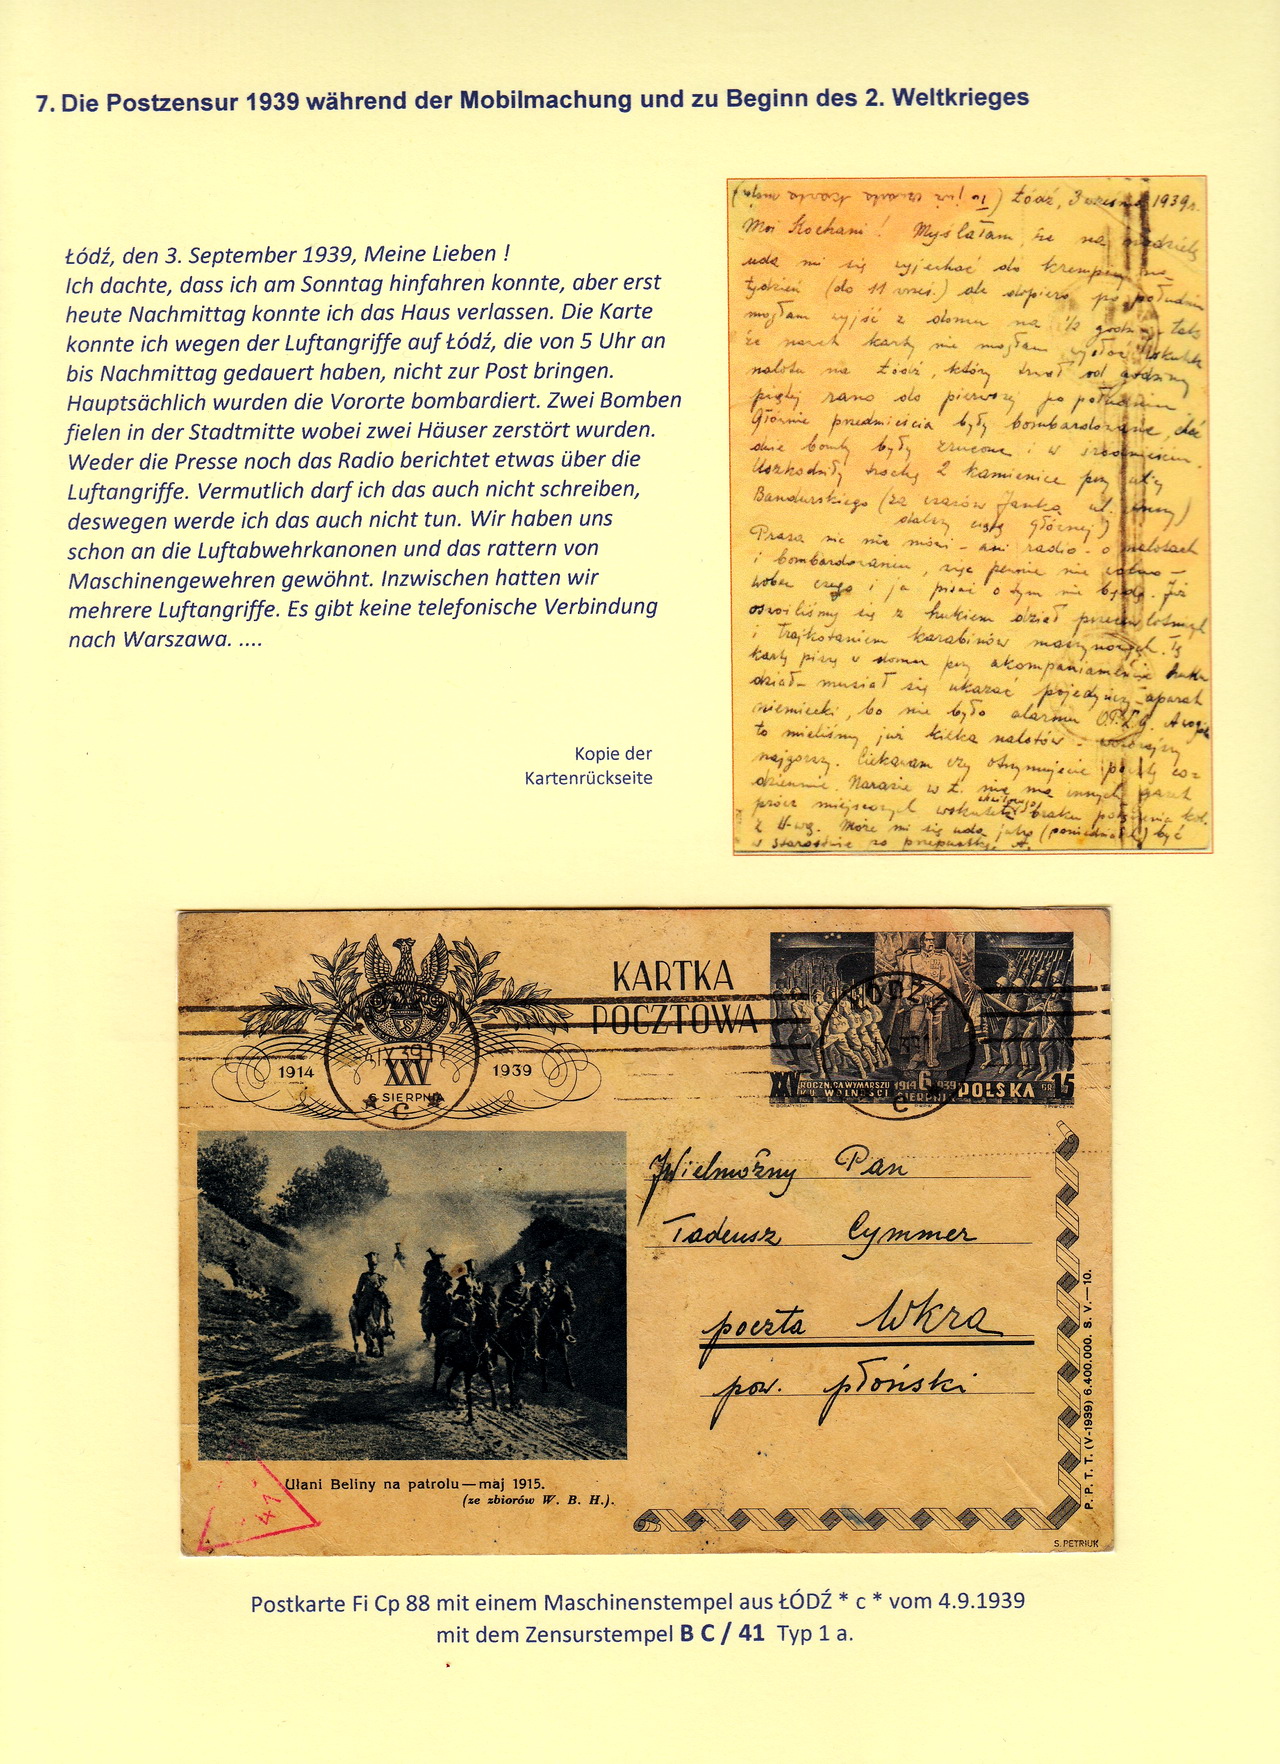 7. Die Postzensur 1939 während der Mobilmachung und zu Beginn des 2. Weltkrieges
Łódź, den 3. September 1939, Meine Lieben !
Ich dachte, dass ich am Sonntag hinfahren konnte, aber erst
heute Nachmittag konnte ich das Haus verlassen. Die Karte
konnte ich wegen der Luftangriffe auf Łódź, die von 5 Uhr an
bis Nachmittag gedauert haben, nicht zur Post bringen.
Hauptsächlich wurden die Vororte bombardiert. Zwei Bomben
fielen in der Stadtmitte wobei zwei Häuser zerstört wurden.
Weder die Presse noch das Radio berichtet etwas über die
Luftangriffe. Vermutlich darf ich das auch nicht schreiben,
deswegen werde ich das auch nicht tun. Wir haben uns
schon an die Luftabwehrkanonen und das rattern von
Maschinengewehren gewöhnt. Inzwischen hatten wir
mehrere Luftangriffe. Es gibt keine telefonische Verbindung
nach Warszawa. ....
Kopie der
Kartenrückseite
(To już czwarta kartka) Łódź, 3 1939r.
Moi Kochani! Myślałam, że na niedzielę
uda mi się wyjechać do na
tydzień (do 11 wrześ.) ale dopiero po południu
mogłam wyjść z domu na 1/2 godz. tak
że nawet karty nie mogłam wysłać wskutek
nalotu na Łódź, który trwał od godziny
piątej rano do pierwszej po południu
Głównie przedmieścia były bombardowane,
dwie bomby były zrucone i w śródmieściu.
Uszkodziły trochę 2 kamienice przy ulicy
Bandurskiego (za czasów Janka ul.
dalszy ciąg głównej)
Prasa nic nie mówi - ani radio - o nalotach
i bombardowaniu, więc pewnie nie wolno -
wobec czego i ja pisać o tym nie będę. Już
oswoiliśmy się z hukiem dział przeciwlotniczych
i trajkotaniem karabinów maszynowych. Tę
kartę piszę w domu przy akompaniamencie huku
dział - musiał się ukazać pojedyńczy aparat
niemiecki, bo nie było alarmu O.P.L.G. A wogóle
to mieliśmy już kilka nalotów - wczorajszy
najgorszy. Ciekawam czy otrzymujecie pocztę co=
dziennie. Narazie w Ł. nie ma innych gazet
prócz miejscowych wskutek braku połączenia kol.
z W-wą. Może mi się uda jutro (poniedziałek) być
w starostwie po przepustkę. A.
KARTKA
POCZTOWA
1914
XXV
1939
6 SIERPNIA
-4.IX.39.11
C
ŁÓDŹ
C
XXV ROCZNICA WYMARSZU
KU WOLNOŚCI
1914 6 1939
SIERPNIA
POLSKA GR. 15
Wielmożny Pan
Tadeusz Cymmer
poczta Wkra
pow. płoński
Ułani Beliny na patrolu — maj 1915.
(ze zbiorów W. B. H.).
41
P. P. T. T. (V-1939) 6.400.000. S. V.—10.
S. PETRIUK
Postkarte Fi Cp 88 mit einem Maschinenstempel aus ŁÓDŹ * c * vom 4.9.1939
mit dem Zensurstempel B C / 41 Typ 1 a.